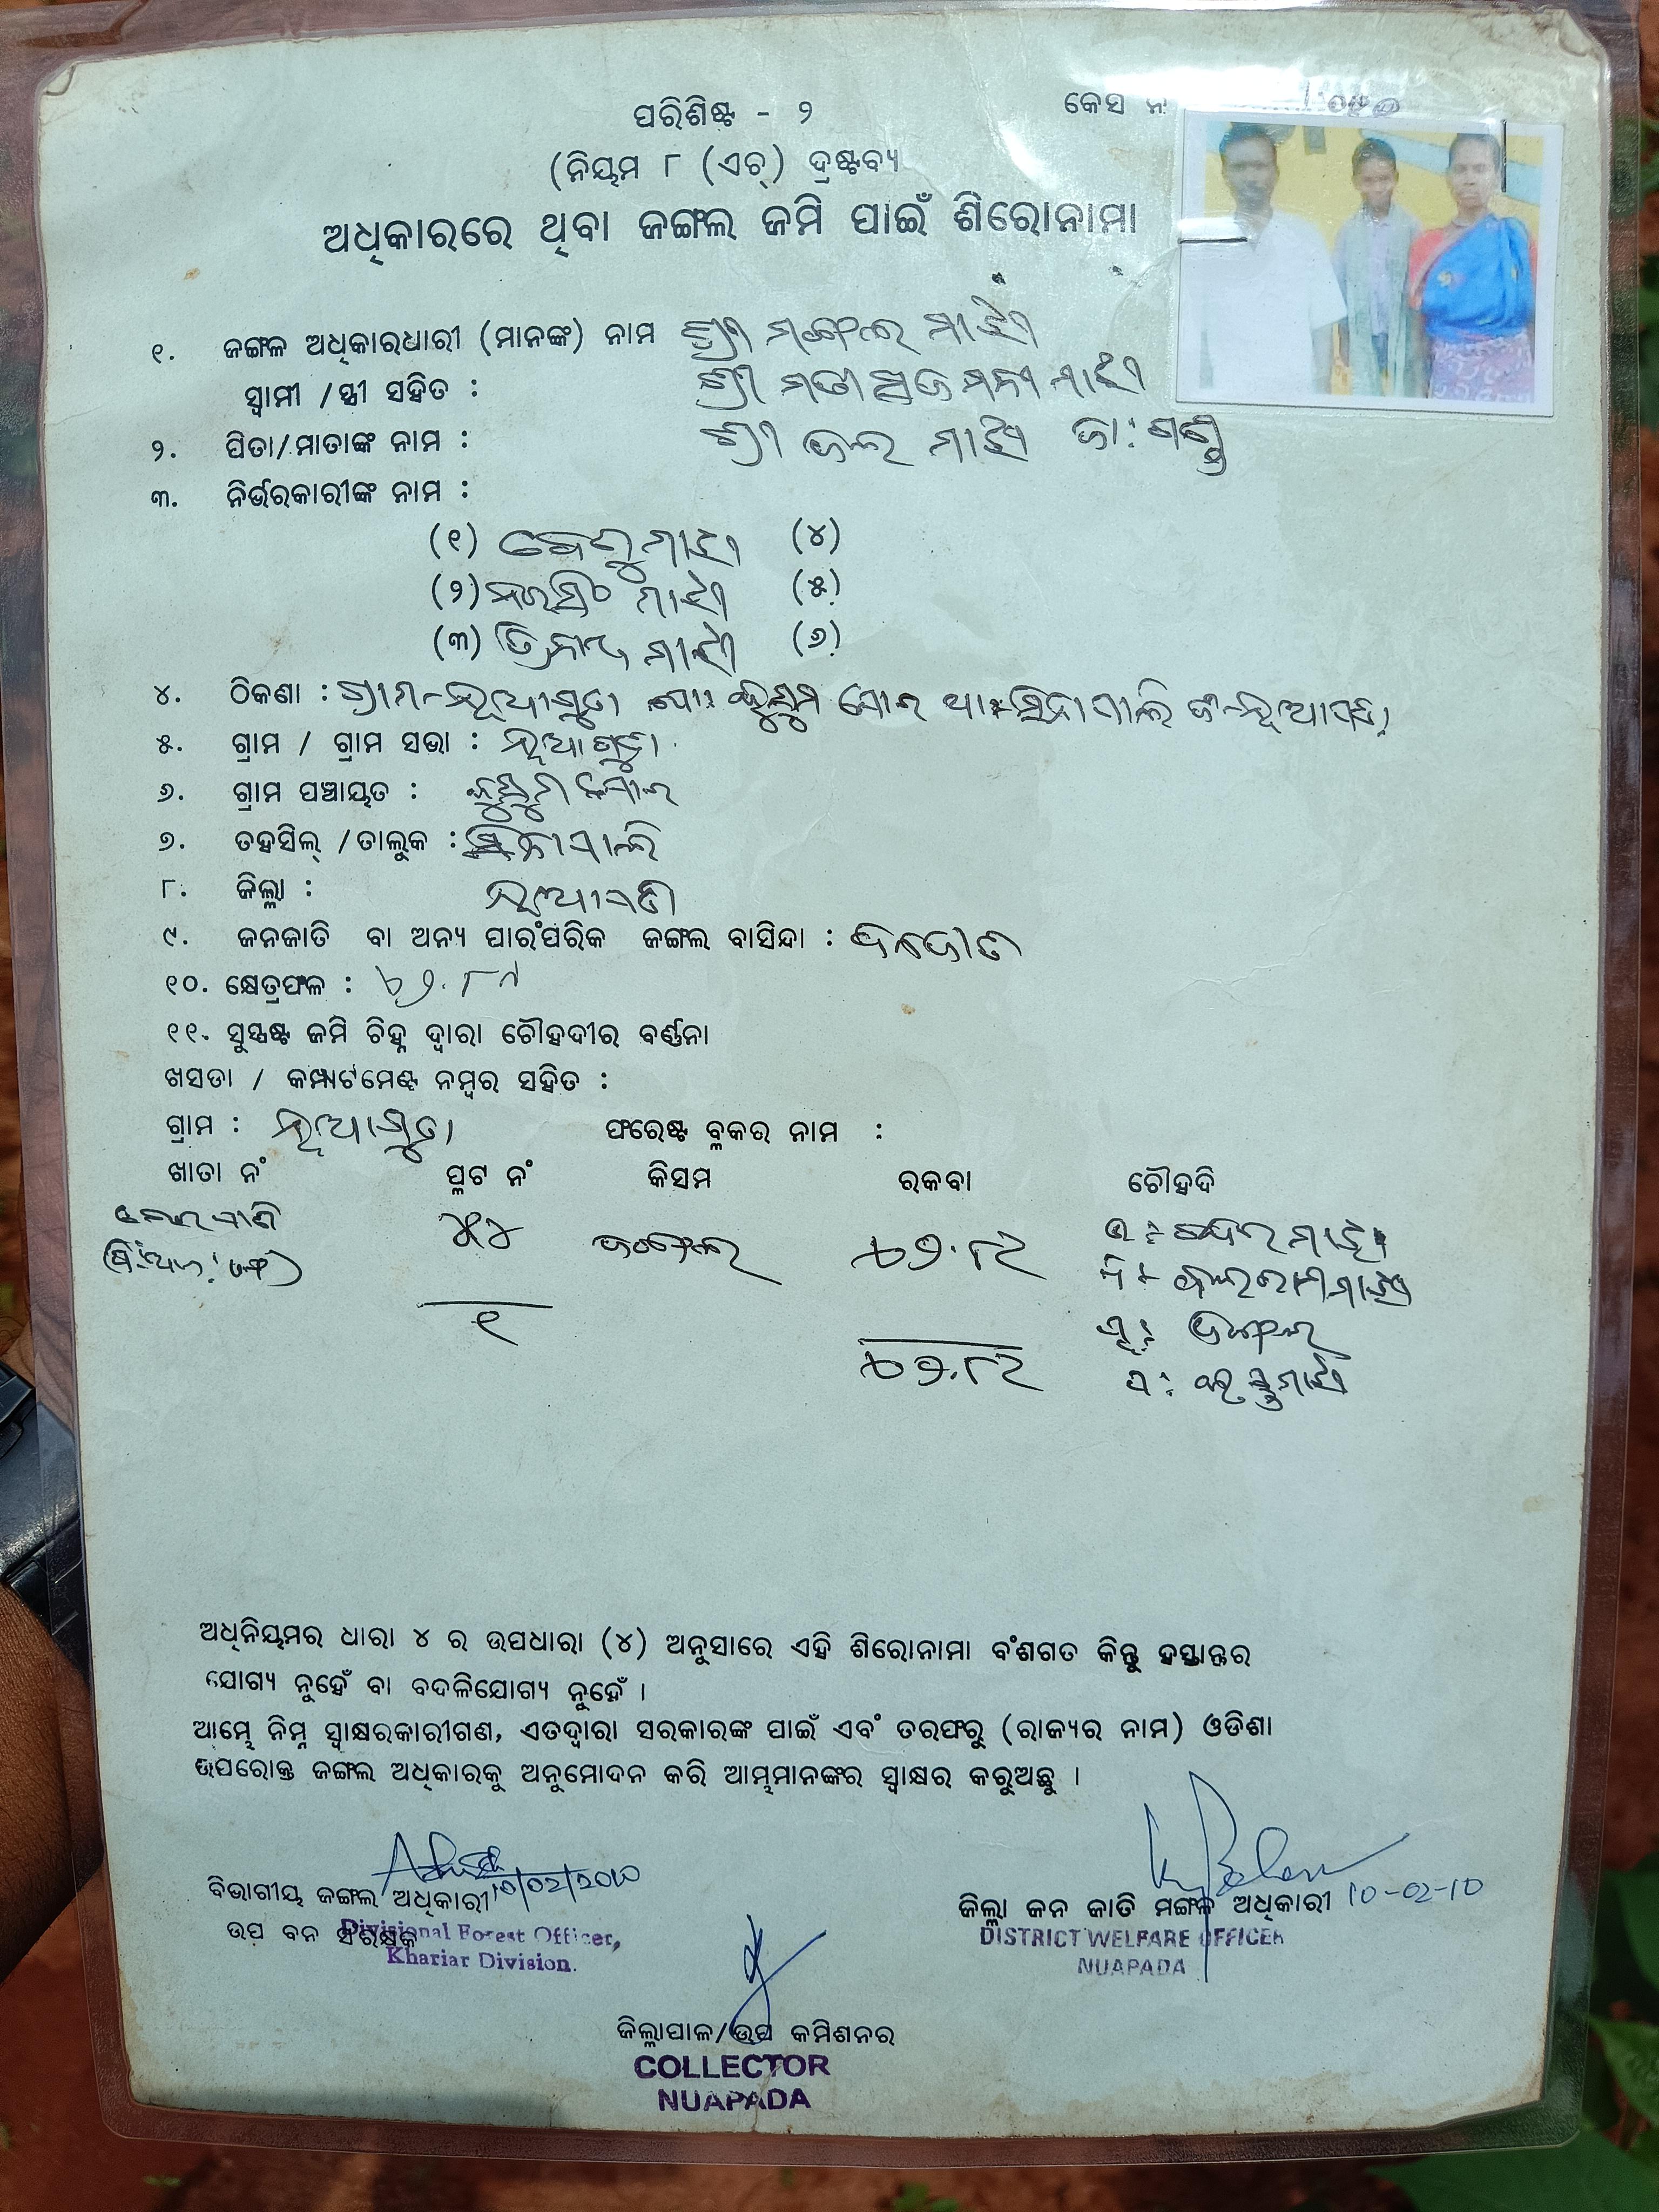 ପରିଶିଷ୍ଟ - ୨
କେସ ନ
(ନିୟମ ୮ (ଏଚ୍) ଦ୍ରଷ୍ଟବ୍ୟ
ଅଧିକାରରେ ଥିବା ଜଙ୍ଗଲ ଜମି ପାଇଁ ଶିରୋନାମା
୧. ଜଙ୍ଗଳ ଅଧିକାରଧାରୀ (ମାନଙ୍କ) ନାମ ଶ୍ରୀ ମଙ୍ଗଲ ମାଝୀ
ସ୍ୱାମୀ /ସ୍ତ୍ରୀ ସହିତ : ଶ୍ରୀ ମତୀ ମାଝୀ
୨. ପିତା/ମାତାଙ୍କ ନାମ : ଶ୍ରୀ ମାଝି ଜା: ଗଣ୍ଡ
୩. ନିର୍ଭରକାରୀଙ୍କ ନାମ :
(୧) ମାଝୀ (୪)
(୨) ନରସିଂ ମାଝୀ (୫)
(୩) ତ୍ରିନାଥ ମାଝୀ (୬)
୪. ଠିକଣା : ଗ୍ରାମ-ନୂଆଗୁଡା ପୋ: ଥା: ସିନାପାଲି ଜି-ନୂଆପଡା
୫. ଗ୍ରାମ / ଗ୍ରାମ ସଭା : ନୂଆଗୁଡା
୬. ଗ୍ରାମ ପଞ୍ଚାୟତ :
୭. ତହସିଲ୍ /ତାଲୁକ : ସିନାପାଲି
୮. ଜିଲ୍ଲା : ନୂଆପଡା
୯. ଜନଜାତି ବା ଅନ୍ୟ ପାରଂପରିକ ଜଙ୍ଗଲ ବାସିନ୍ଦା :
୧୦. କ୍ଷେତ୍ରଫଳ :
୧୧. ସୁସ୍ପଷ୍ଟ ଜମି ଚିହ୍ନ ଦ୍ୱାରା ଚୌହଦୀର ବର୍ଣ୍ଣନା
ଖସଡା / କମ୍ପାର୍ଟମେଣ୍ଟ ନମ୍ବର ସହିତ :
ଗ୍ରାମ : ନୂଆଗୁଡା ଫରେଷ୍ଟ ବ୍ଲକର ନାମ :
ଖାତା ନଂ ପ୍ଲଟ ନଂ କିସମ ରକବା ଚୌହଦି
୪୪ ଜଙ୍ଗଲ ଉ: ମାଝୀ
ଦ: ବଳରାମ ମାଝୀ
୧ ପୂ: ଜଙ୍ଗଲ
ପ: ମାଝୀ
ଅଧିନିୟମର ଧାରା ୪ ର ଉପଧାରା (୪) ଅନୁସାରେ ଏହି ଶିରୋନାମା ବଂଶଗତ କିନ୍ତୁ ହସ୍ତାନ୍ତର
ଯୋଗ୍ୟ ନୁହେଁ ବା ବଦଳିଯୋଗ୍ୟ ନୁହେଁ ।
ଆମ୍ଭେ ନିମ୍ନ ସ୍ୱାକ୍ଷରକାରୀଗଣ, ଏତଦ୍ୱାରା ସରକାରଙ୍କ ପାଇଁ ଏବଂ ତରଫରୁ (ରାଜ୍ୟର ନାମ) ଓଡିଶା
ଉପରୋକ୍ତ ଜଙ୍ଗଲ ଅଧିକାରକୁ ଅନୁମୋଦନ କରି ଆମ୍ଭମାନଙ୍କର ସ୍ୱାକ୍ଷର କରୁଅଛୁ ।
10/02/2010
ବିଭାଗୀୟ ଜଙ୍ଗଲ ଅଧିକାରୀ
ଉପ ବନ ସଂରକ୍ଷକ
Divisional Forest Officer,
Khariar Division.
ଜିଲ୍ଲା ଜନ ଜାତି ମଙ୍ଗଳ ଅଧିକାରୀ 10-02-10
DISTRICT WELFARE OFFICER
NUAPADA
ଜିଲ୍ଲାପାଳ/ଉପ କମିଶନର
COLLECTOR
NUAPADA